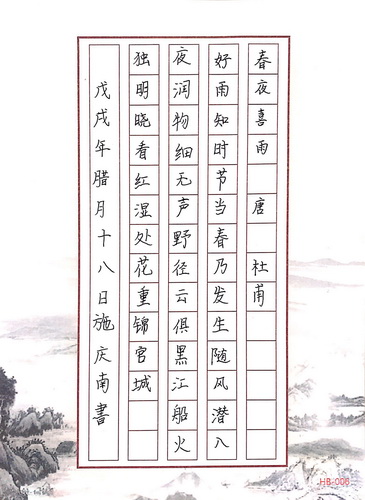 春夜喜雨 唐 杜甫
好雨知时节当春乃发生随风潜入
夜润物细无声野径云俱黑江船火
独明晓看红湿处花重锦官城
戊戌年腊月十八日施庆南书
HB-006